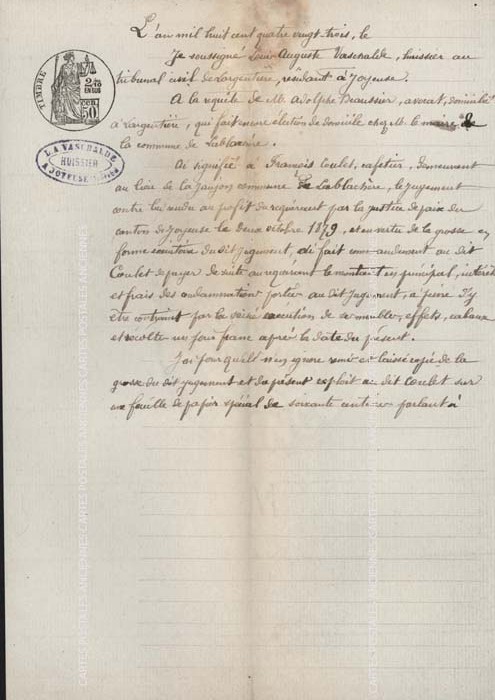 L'an mil huit cent quatre vingt-trois, le
Je soussigné Louis Auguste Vaschalde, huissier au
tribunal civil de Largentière, résidant à Joyeuse.
A la requête de M. Adolphe Beaussier, avocat, domicilié
à Largentière, qui fait encore élection de domicile chez M. le maire de
la commune de Lablachère.
Ai signifié à François Coulet, cafetier, demeurant
au lieu de La Jaujon commune de Lablachère, le jugement
contre lui rendu au profit du requérant par la justice de paix du
canton de Joyeuse le deux octobre 1879, et en vertu de la grosse en
forme exécutoire du dit jugement, ai fait commandement au dit
Coulet de payer de suite au requérant le montant en principal, intérêts
et frais des condamnations portées au dit jugement, à peine d'y
être contraint par la saisie exécution de ses meubles, effets, cabaux
et récolte un jour franc après la date du présent.
J'ai pour qu'il n'en ignore remis et laissé copie de la
grosse du dit jugement et du présent exploit au dit Coulet sur
une feuille de papier spécial de soixante centimes parlant à
TIMBRE
2/10
EN SUS
50 CEN
LA VASCHALDE
HUISSIER
A JOYEUSE
CARTES POSTALES ANCIENNES